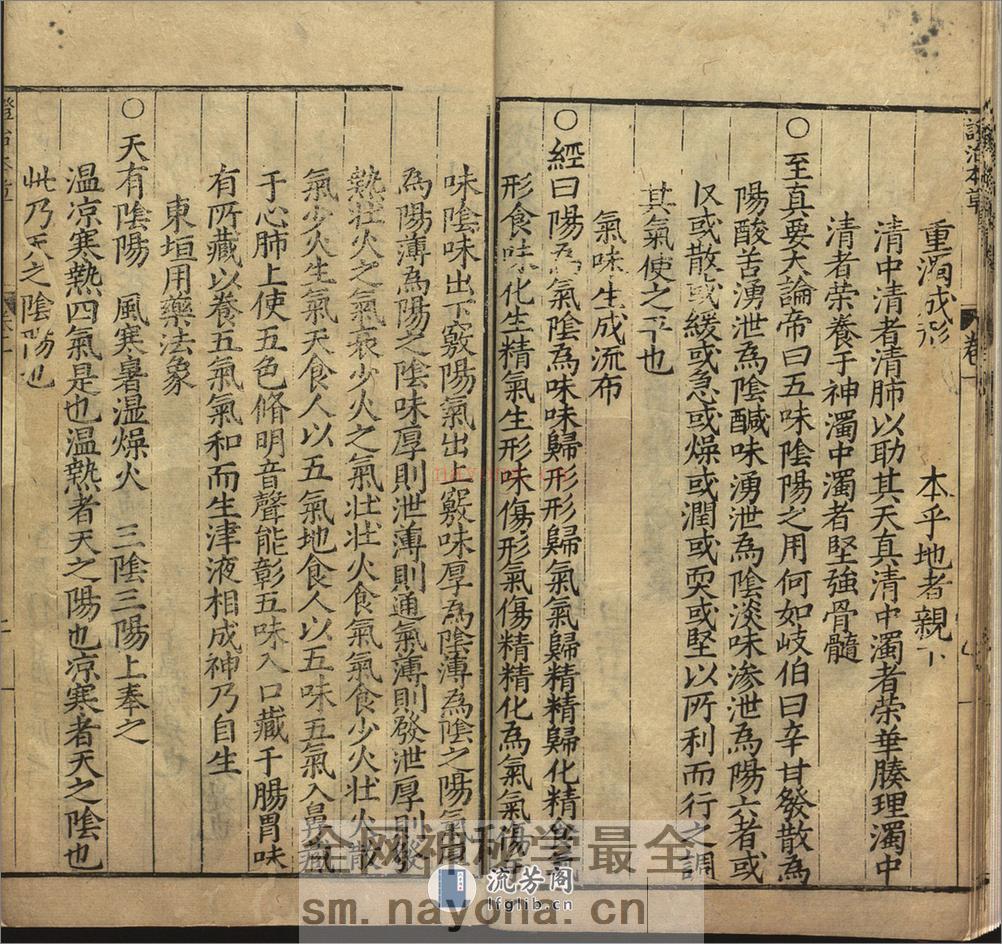 證治本草
卷一
重濁成形　本乎地者親下
清中清者清肺以助其天真清中濁者荣華腠理濁中
清者荣養于神濁中濁者堅強骨髓
○至真要大論帝曰五味陰陽之用何如岐伯曰辛甘發散為
陽酸苦湧泄為陰鹹味湧泄為陰淡味渗泄為陽六者或
収或散或緩或急或燥或潤或耎或堅以所利而行之調
其氣使之平也
氣味生成流布
○經曰陽為氣陰為味味歸形形歸氣氣歸精精歸化精食氣
形食味化生精氣生形味傷形氣傷精精化為氣氣傷
味陰味出下竅陽氣出上竅味厚為陰薄為陰之陽氣厚
為陽薄為陽之陰味厚則泄薄則通氣薄則發泄厚則發
熱壮火之氣衰少火之氣壮壮火食氣氣食少火壮火散
氣少火生氣天食人以五氣地食人以五味五氣入鼻藏
于心肺上使五色脩明音聲能彰五味入口藏于腸胃味
有所藏以養五氣氣和而生津液相成神乃自生
東垣用藥法象
○天有陰陽　風寒暑湿燥火　三陰三陽上奉之
温凉寒熱四氣是也温熱者天之陽也凉寒者天之陰也
此乃天之陰陽也
全网神秘学最全
流芳阁
lfglib.cn
sm.nayona.cn